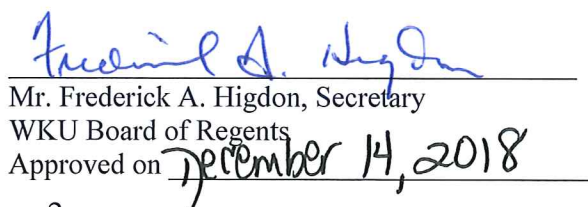 Frederick A. Higdon
Mr. Frederick A. Higdon, Secretary
WKU Board of Regents
Approved on December 14, 2018
2